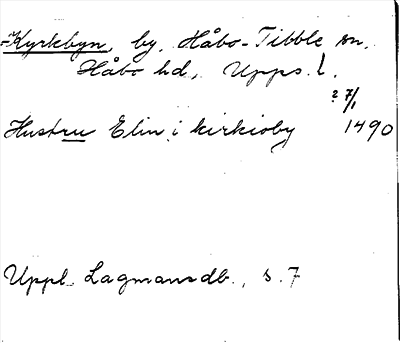 -Kyrkbyn, by, Håbo-Tibble sn.
Håbo hd, Upps. l.
? 7/1
Hustru Elin i kirkioby 1490
Uppl. Lagmansdb., s. 7